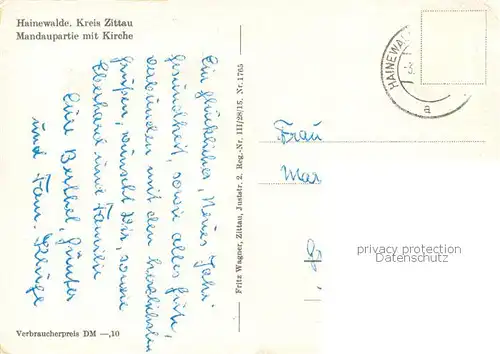 Hainewalde, Kreis Zittau
Mandaupartie mit Kirche
Ein glückliches, Neues Jahr
Gesundheit, sowie alles Gute,
verbunden mit den herzlichsten
Grüßen, wünscht Dir, sowie
Eberhard und Familie
Eure Berthel, Günter
und Fam. Kluge
Verbraucherpreis DM —,10
Fritz Wagner, Zittau, Juststr. 2. Reg.-Nr. III/28/15. Nr. 1765
HAINEWAL
a
Frau
Mar
privacy protection
Datenschutz